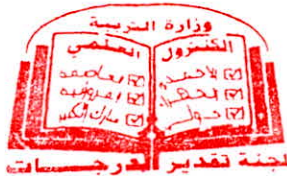 وزارة التربية
الكنترول العلمي
الأحمدي العاصمة
الجهراء الفروانية
حولي مبارك الكبير
لجنة تقدير الدرجـــات